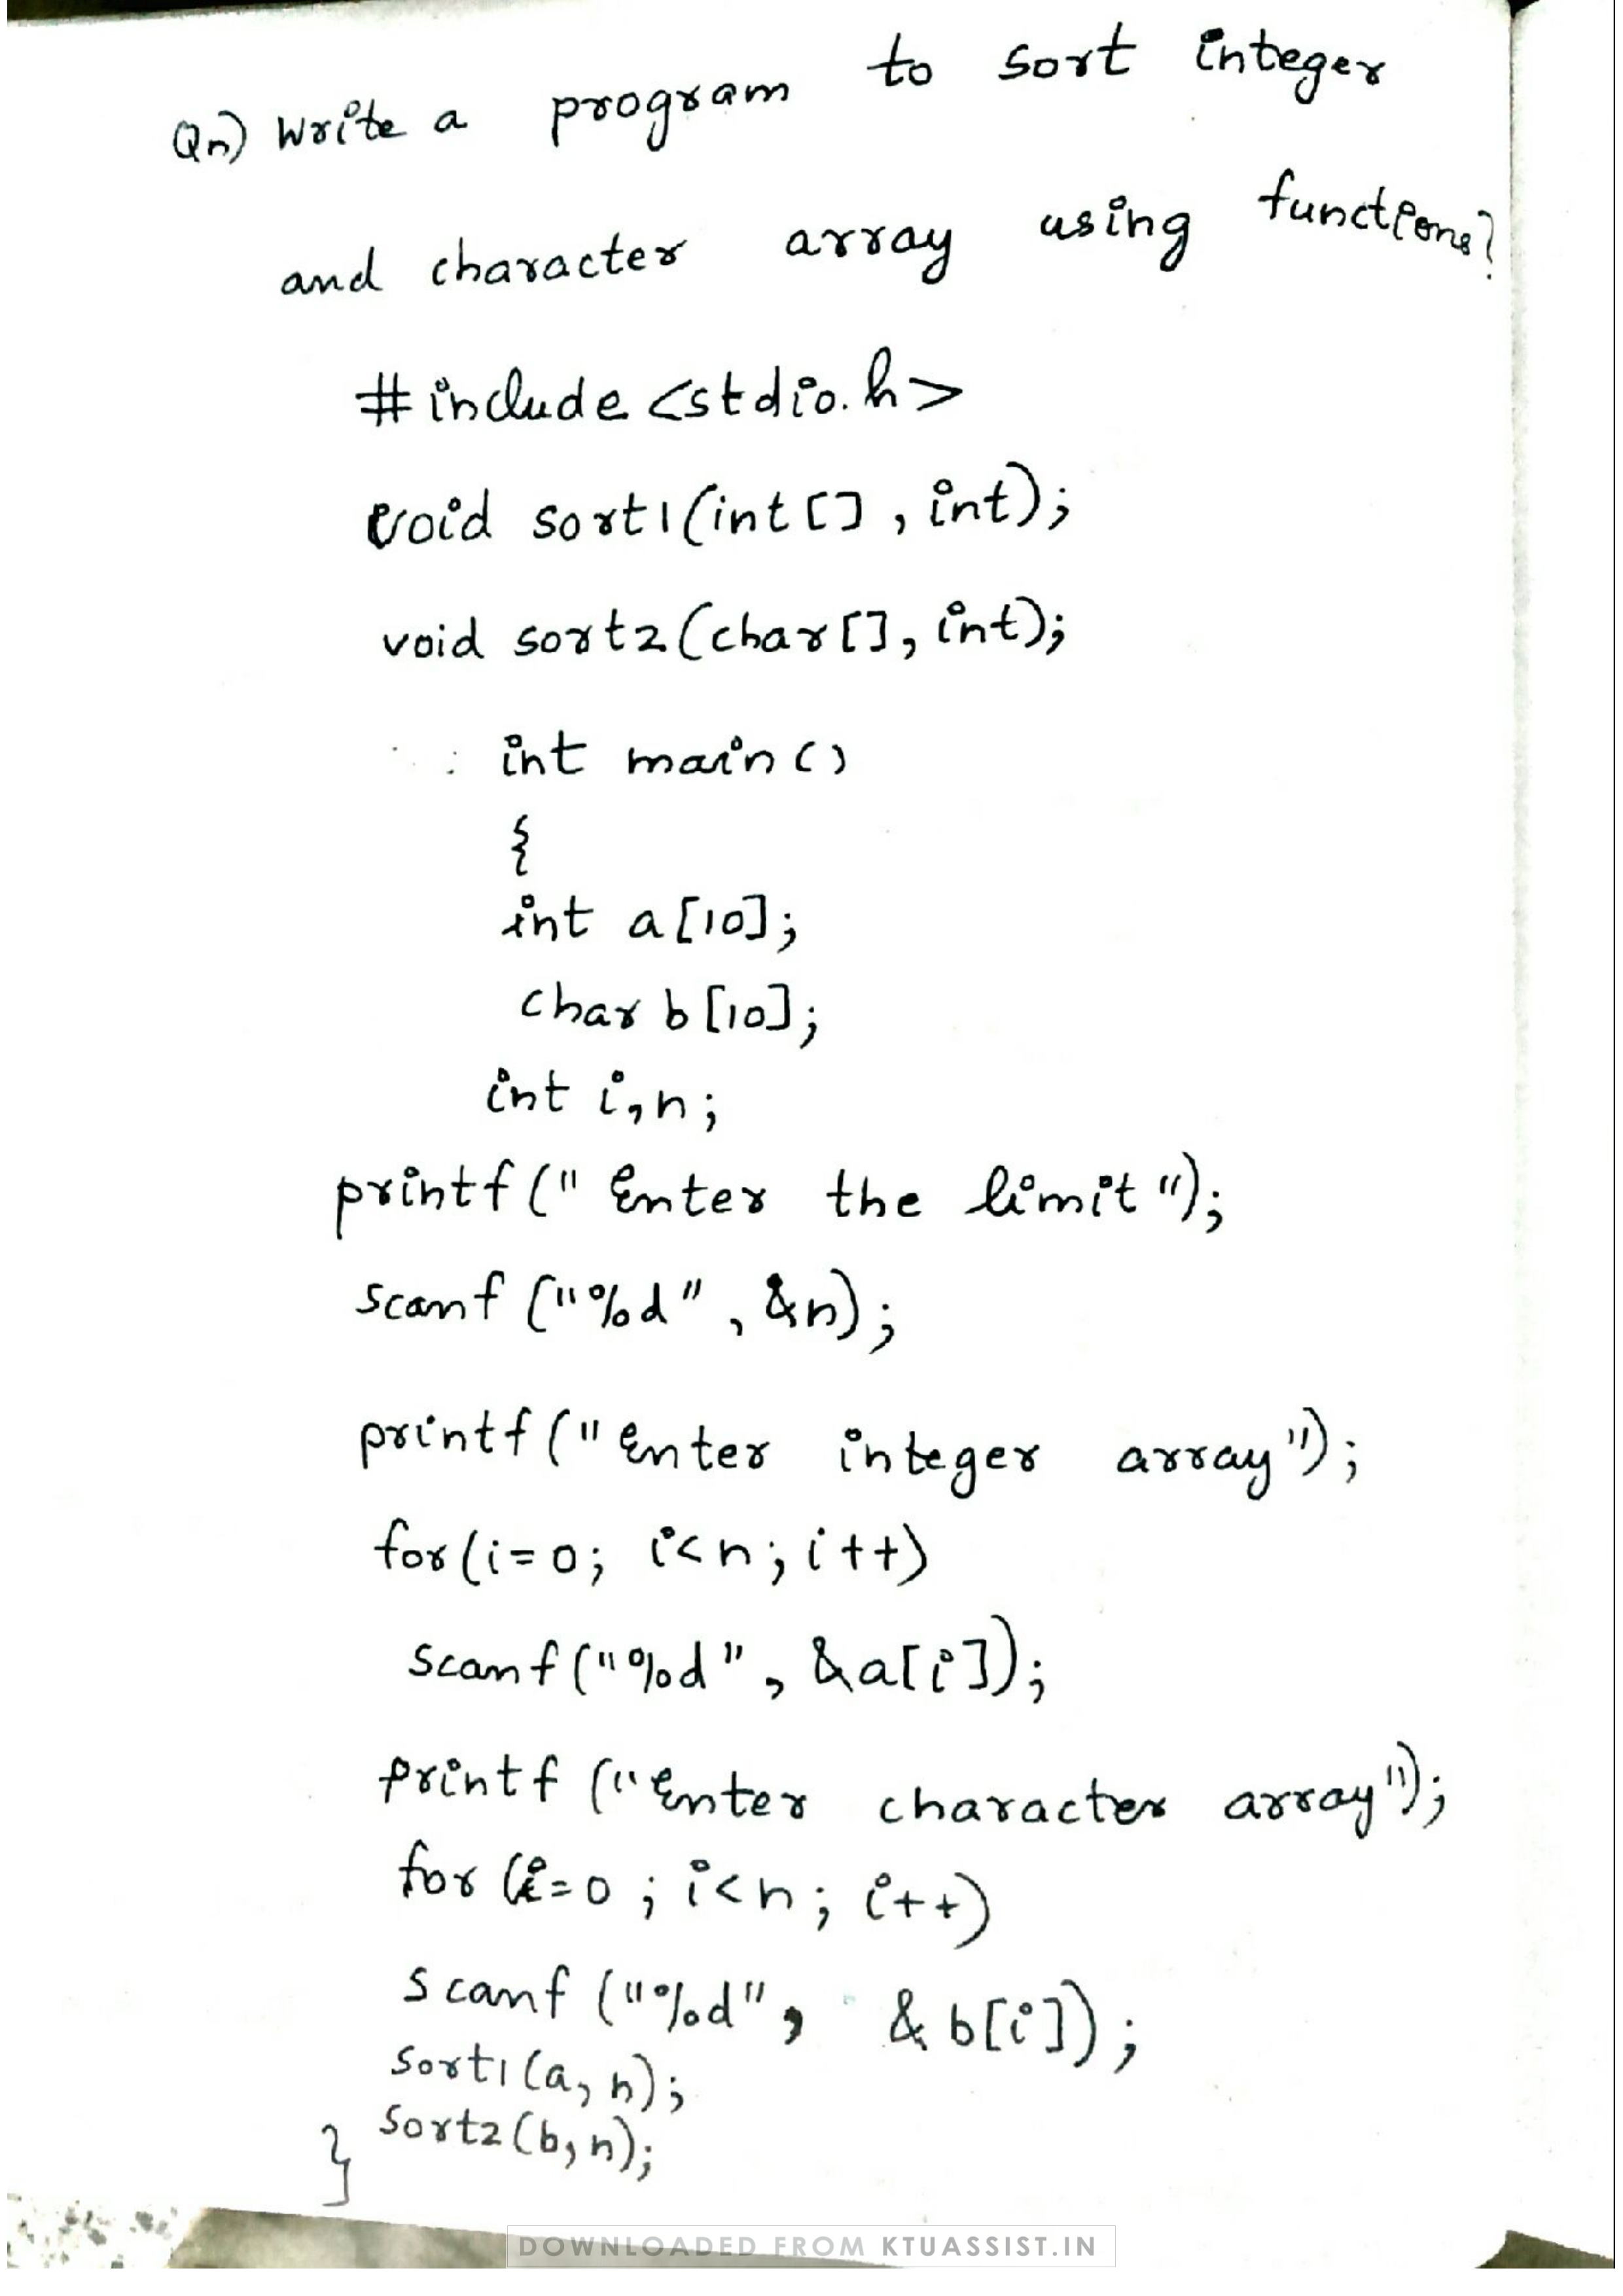 Qn) Write a program to sort integer
and character array using functions?
#include <stdio.h>
void sort1(int[], int);
void sort2(char[], int);
int main()
{
int a[10];
char b[10];
int i,n;
printf("Enter the limit");
scanf("%d", &n);
printf("Enter integer array");
for(i=0; i<n; i++)
scanf("%d", &a[i]);
printf("Enter character array");
for(i=0; i<n; i++)
scanf("%d", &b[i]);
sort1(a,n);
sort2(b,n);
}
DOWNLOADED FROM KTUASSIST.IN